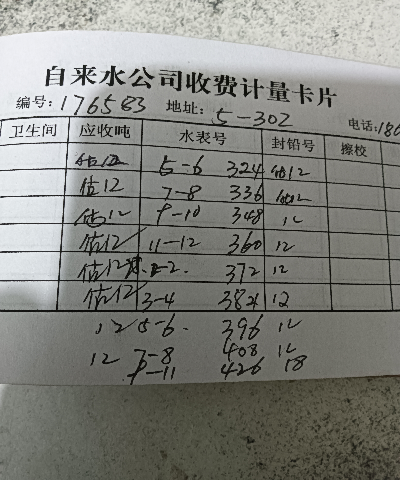 自来水公司收费计量卡片
编号:176583 地址:5-302 电话:186
卫生间 应收吨 水表号 封铅号 擦校
估12 5-6 324 估12
估12 7-8 336 估12
估12 9-10 348 12
估12 11-12 360 12
估12 1-2. 372 12
估12 3-4 384 12
12 5-6. 396 12
12 7-8 408 12
9-11 426 18